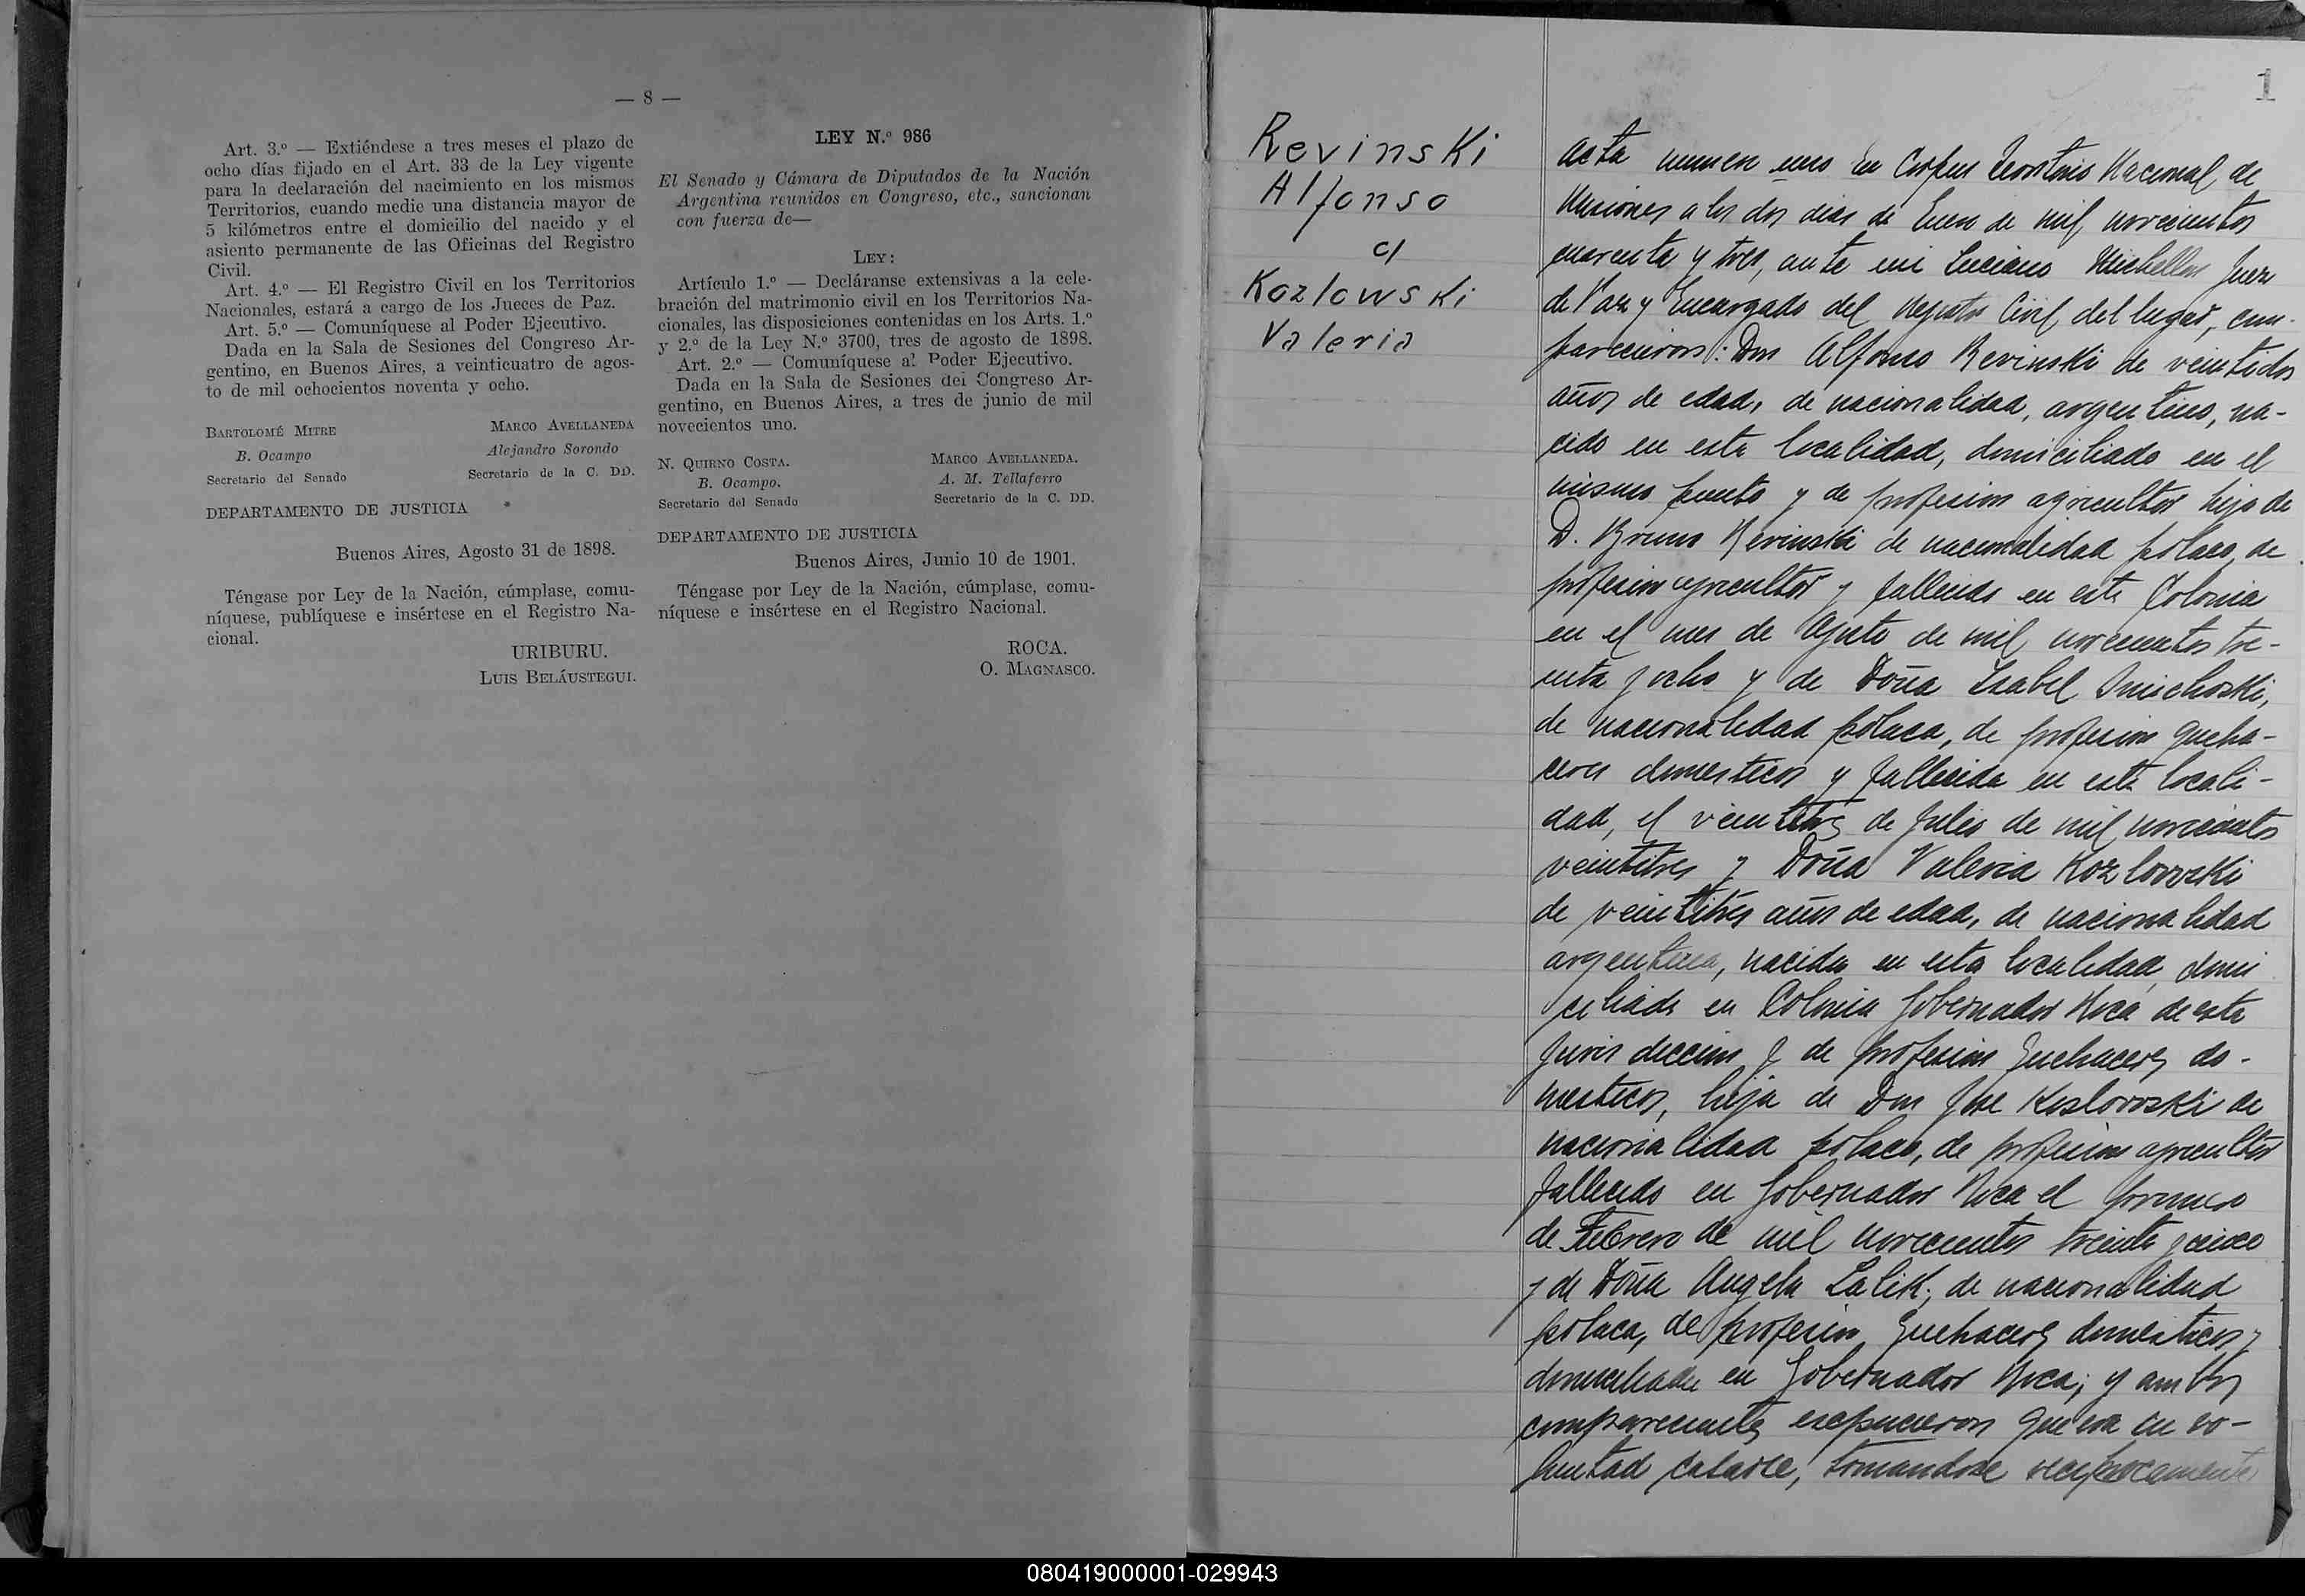 — 8 —
Art. 3.º — Extiéndese a tres meses el plazo de
ocho días fijado en el Art. 33 de la Ley vigente
para la declaración del nacimiento en los mismos
Territorios, cuando medie una distancia mayor de
5 kilómetros entre el domicilio del nacido y el
asiento permanente de las Oficinas del Registro
Civil.
Art. 4.º — El Registro Civil en los Territorios
Nacionales, estará a cargo de los Jueces de Paz.
Art. 5.º — Comuníquese al Poder Ejecutivo.
Dada en la Sala de Sesiones del Congreso Ar-
gentino, en Buenos Aires, a veinticuatro de agos-
to de mil ochocientos noventa y ocho.
BARTOLOMÉ MITRE MARCO AVELLANEDA
B. Ocampo Alejandro Sorondo
Secretario del Senado Secretario de la C. DD.
DEPARTAMENTO DE JUSTICIA
Buenos Aires, Agosto 31 de 1898.
Téngase por Ley de la Nación, cúmplase, comu-
níquese, publíquese e insértese en el Registro Na-
cional.
URIBURU.
LUIS BELÁUSTEGUI.
LEY N.º 986
El Senado y Cámara de Diputados de la Nación
Argentina reunidos en Congreso, etc., sancionan
con fuerza de—
LEY:
Artículo 1.º — Decláranse extensivas a la cele-
bración del matrimonio civil en los Territorios Na-
cionales, las disposiciones contenidas en los Arts. 1.º
y 2.º de la Ley N.º 3700, tres de agosto de 1898.
Art. 2.º — Comuníquese al Poder Ejecutivo.
Dada en la Sala de Sesiones del Congreso Ar-
gentino, en Buenos Aires, a tres de junio de mil
novecientos uno.
N. QUIRNO COSTA. MARCO AVELLANEDA.
B. Ocampo. A. M. Tellaferro
Secretario del Senado Secretario de la C. DD.
DEPARTAMENTO DE JUSTICIA
Buenos Aires, Junio 10 de 1901.
Téngase por Ley de la Nación, cúmplase, comu-
níquese e insértese en el Registro Nacional.
ROCA.
O. MAGNASCO.
1
Revinski
Alfonso
c/
Kozlowski
Valeria
Acta numero uno En Corpus Territorio Nacional de
Misiones a los dos dias de Enero de mil novecientos
cuarenta y tres, ante mi Luciano Juez
de Paz y Encargado del Registro Civil del lugar, com-
parecieron: Don Alfonso Revinski de veintidos
años de edad, de nacionalidad, argentino, na-
cido en esta localidad, domiciliado en el
mismo punto y de profesion agricultor hijo de
D. Bruno Revinski de nacionalidad polaco, de
profesion agricultor y fallecido en esta Colonia
en el mes de Agosto de mil novecientos tre-
inta y ocho y de Doña Isabel
de nacionalidad polaca, de profesion queha-
ceres domesticos y fallecida en esta locali-
dad, el veintitres de Julio de mil novecientos
veintitres y Doña Valeria Kozlowski
de veintitrés años de edad, de nacionalidad
argentina, nacida en esta localidad, domi
ciliada en Colonia Gobernador Roca de esta
Jurisdiccion y de profesion quehaceres do-
mesticos, hija de Don José Koslowski de
nacionalidad polaco, de profesion agricultor
fallecido en Gobernador Roca el primero
de Febrero de mil novecientos treinta y cinco
y de Doña Angela Lalik, de nacionalidad
polaca, de profesion quehaceres domesticos y
domiciliada en Gobernador Roca; y ambos
comparecientes expusieron que era su vo-
luntad casarse, tomandose reciprocamente
080419000001-029943